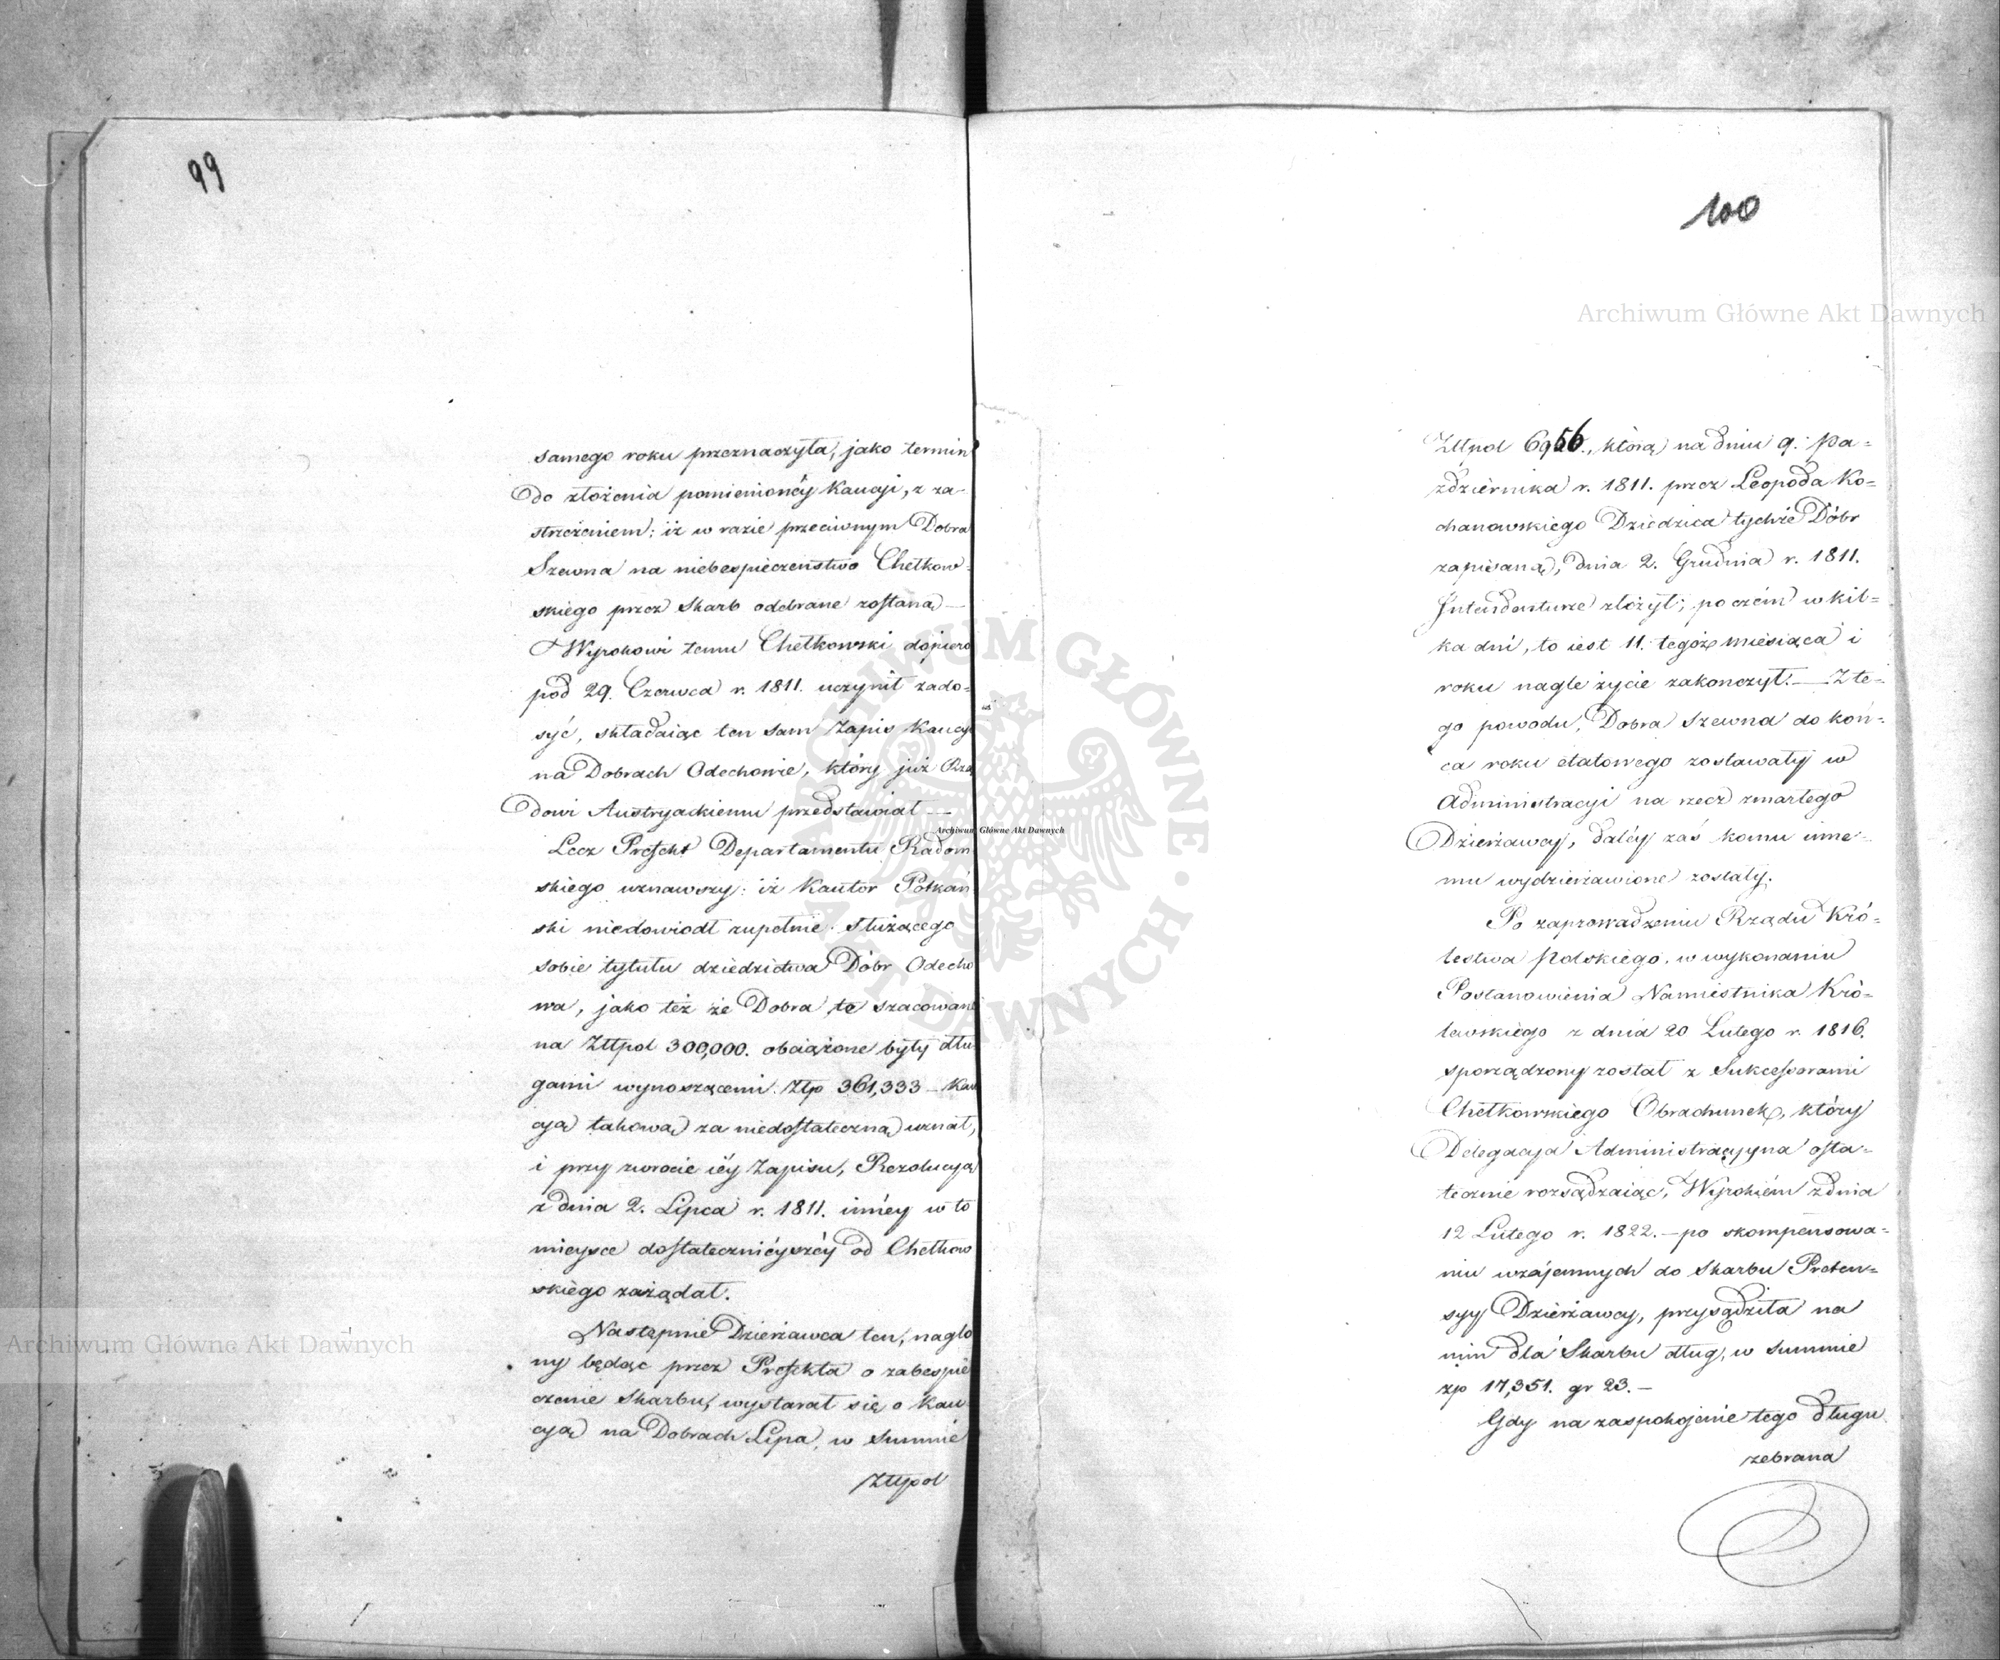 99
samego roku przeznaczyła, jako termin
do złożenia pomienionéy Kaucyi, z za-
strzeżeniem: iż w razie przeciwnym Dobra
Szewna na niebespieczeństwo Chełkow-
skiego przez Skarb odebrane zostaną —
Wyrokowi temu Chełkowski dopiero
pod 29. Czerwca r. 1811. uczynił zado-
syć, składaiąc ten sam Zapis Kaucyi
na Dobrach Odechowie, który już Rzą
dowi Austryackiemu przedstawiał —
Lecz Prefekt Departamentu Radom
skiego uznawszy: iż Kautor Potkań
ski niedowiodł zupełnie służącego
sobie tytułu dziedzictwa Dóbr Odecho
wa, jako też że Dobra te szacowane
na Złtpol 300,000. obciążone były dłu
gami wynoszącemi Złp 361,333 — Kau
cyą takową za niedostateczną uznał,
i przy zwrocie iéy Zapisu, Rezolucyą
z dnia 2. Lipca r. 1811. innéy w to
mieysce dostatecznieyszéy od Chełkow
skiego zażądał.
Następnie Dzierżawca ten, naglo
ny będąc przez Prefekta o zabespie
czenie Skarbu, wystarał się o Kau
cyą na Dobrach Lipa, w Summie
Złtpol
100
Złtpol 6956., którą na dniu 9. Pa-
zdziernika r. 1811. przez Leopolda Ko-
chanowskiego Dziedzica tychże Dóbr
zapisaną, dnia 2. Grudnia r. 1811.
Intendenturze złożył; poczém w kil-
ka dni, to iest 11. tegoż miesiąca i
roku nagle życie zakończył. — Z te-
go powodu, Dobra Szewna do koń-
ca roku etatowego zostawały w
Administracyi na rzecz zmarłego
Dzierżawcy, daléy zaś komu inne-
mu wydzierżawione zostały.
Po zaprowadzeniu Rządu Kró-
lestwa Polskiego, w wykonaniu
Postanowienia Namiestnika Kró-
lewskiego z dnia 20 Lutego r. 1816.
sporządzony został z Sukcessorami
Chełkowskiego Obrachunek, który
Delegacya Administracyyna osta-
tecznie rozsądzaiąc, Wyrokiem z dnia
12 Lutego r. 1822. — po skompensowa-
niu wzájemnych do Skarbu Preten-
syy Dzierżawcy, przysądziła na
nim dla Skarbu dług, w Summie
zp 17,351. gr 23. —
Gdy na zaspokojenie tego długu
zebrana
Archiwum Główne Akt Dawnych
Archiwum Główne Akt Dawnych
Archiwum Główne Akt Dawnych
ARCHIWUM GŁÓWNE · AKT DAWNYCH ·